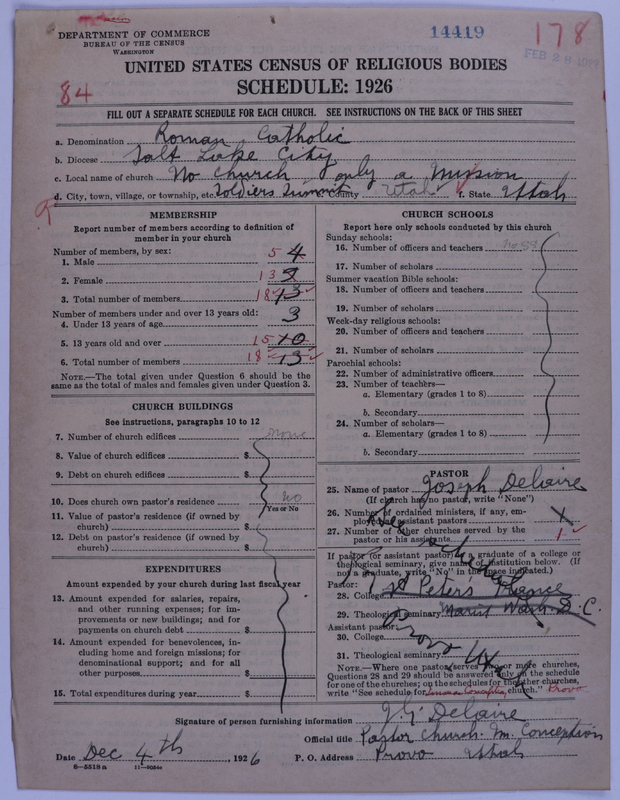 14419
178
DEPARTMENT OF COMMERCE
BUREAU OF THE CENSUS
WASHINGTON
FEB 28
UNITED STATES CENSUS OF RELIGIOUS BODIES
SCHEDULE: 1926
84
FILL OUT A SEPARATE SCHEDULE FOR EACH CHURCH. SEE INSTRUCTIONS ON THE BACK OF THIS SHEET
a. Denomination Roman Catholic
b. Diocese Salt Lake City
c. Local name of church No Church only a Mission
d. City, town, village, or township, etc. Soldiers Summit County Utah f. State Utah
MEMBERSHIP
Report number of members according to definition of member in your church
Number of members, by sex:
1. Male 5 4
2. Female 13
3. Total number of members 18 13
Number of members under and over 13 years old:
4. Under 13 years of age 3
5. 13 years old and over 15 10
6. Total number of members 18 13
NOTE.—The total given under Question 6 should be the same as the total of males and females given under Question 3.
CHURCH BUILDINGS
See instructions, paragraphs 10 to 12
7. Number of church edifices none
8. Value of church edifices $
9. Debt on church edifices $
10. Does church own pastor's residence No
Yes or No
11. Value of pastor's residence (if owned by church) $
12. Debt on pastor's residence (if owned by church) $
EXPENDITURES
Amount expended by your church during last fiscal year
13. Amount expended for salaries, repairs, and other running expenses; for improvements or new buildings; and for payments on church debt $
14. Amount expended for benevolences, including home and foreign missions; for denominational support; and for all other purposes $
15. Total expenditures during year $
CHURCH SCHOOLS
Report here only schools conducted by this church
Sunday schools:
16. Number of officers and teachers no SS
17. Number of scholars
Summer vacation Bible schools:
18. Number of officers and teachers
19. Number of scholars
Week-day religious schools:
20. Number of officers and teachers
21. Number of scholars
Parochial schools:
22. Number of administrative officers
23. Number of teachers—
a. Elementary (grades 1 to 8)
b. Secondary
24. Number of scholars—
a. Elementary (grades 1 to 8)
b. Secondary
PASTOR
25. Name of pastor Joseph Delaire
(If church has no pastor, write "None")
26. Number of ordained ministers, if any, employed as assistant pastors X
27. Number of other churches served by the pastor or his assistants 1
If pastor (or assistant pastor) is a graduate of a college or theological seminary, give name of institution below. (If not a graduate, write "No" in the space indicated.)
See schedule Provo Utah
Pastor:
28. College St Peters France
29. Theological seminary Marist Wash. D.C.
Assistant pastor:
30. College
31. Theological seminary
NOTE.—Where one pastor serves two or more churches, Questions 28 and 29 should be answered only on the schedule for one of the churches; on the schedules for the other churches, write "See schedule for Immac Conception church." Provo
Signature of person furnishing information J. G. Delaire
Official title Pastor Church. Im. Conception
Date Dec 4th, 1926 P. O. Address Provo Utah
8—5518a 11—9054c